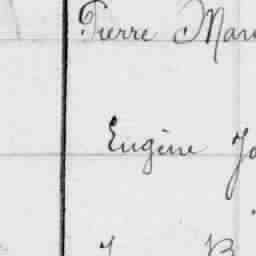 Pierre Mari
Eugène Jo